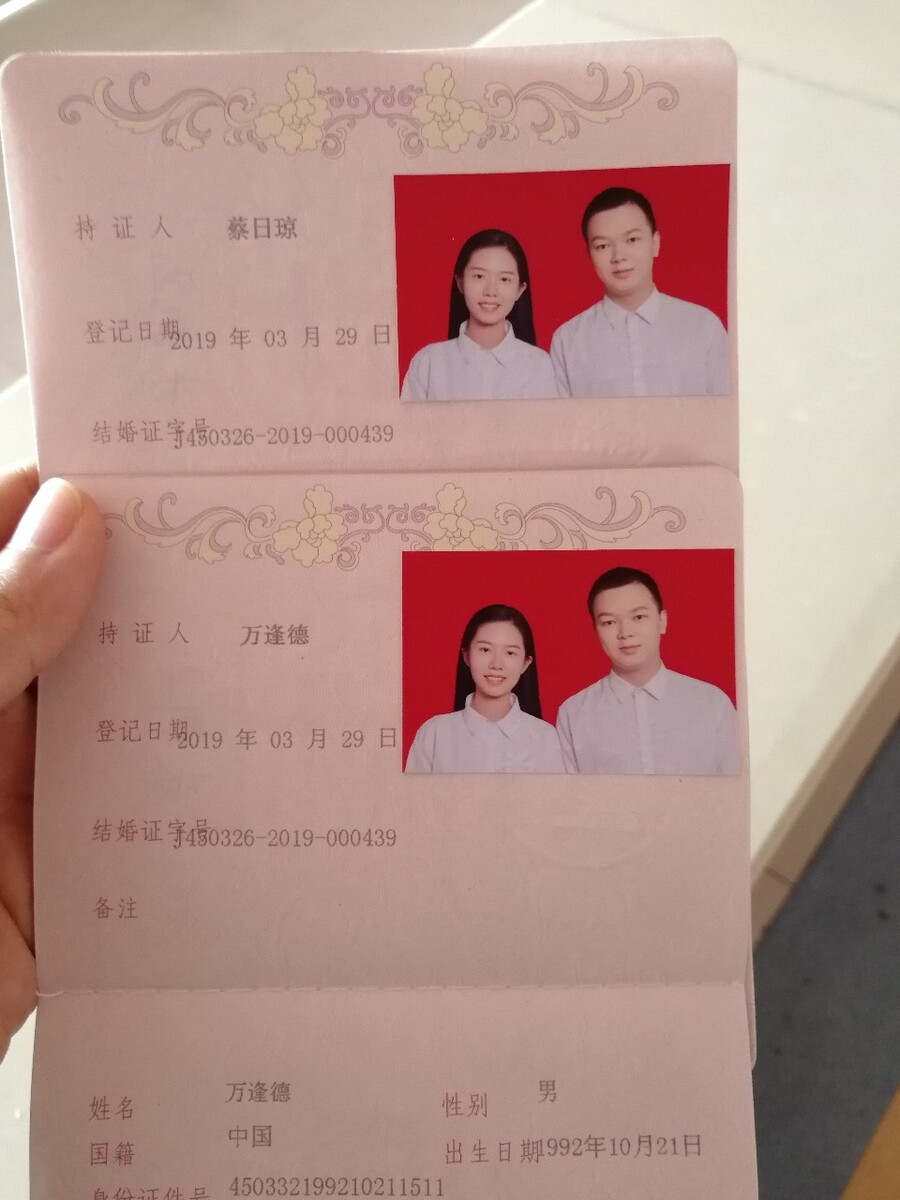 持证人 蔡日琼
登记日期 2019 年 03 月 29 日
结婚证字号 J450326-2019-000439
持证人 万逢德
登记日期 2019 年 03 月 29 日
结婚证字号 J450326-2019-000439
备注
姓名 万逢德 性别 男
国籍 中国 出生日期 1992年10月21日
身份证件号 450332199210211511